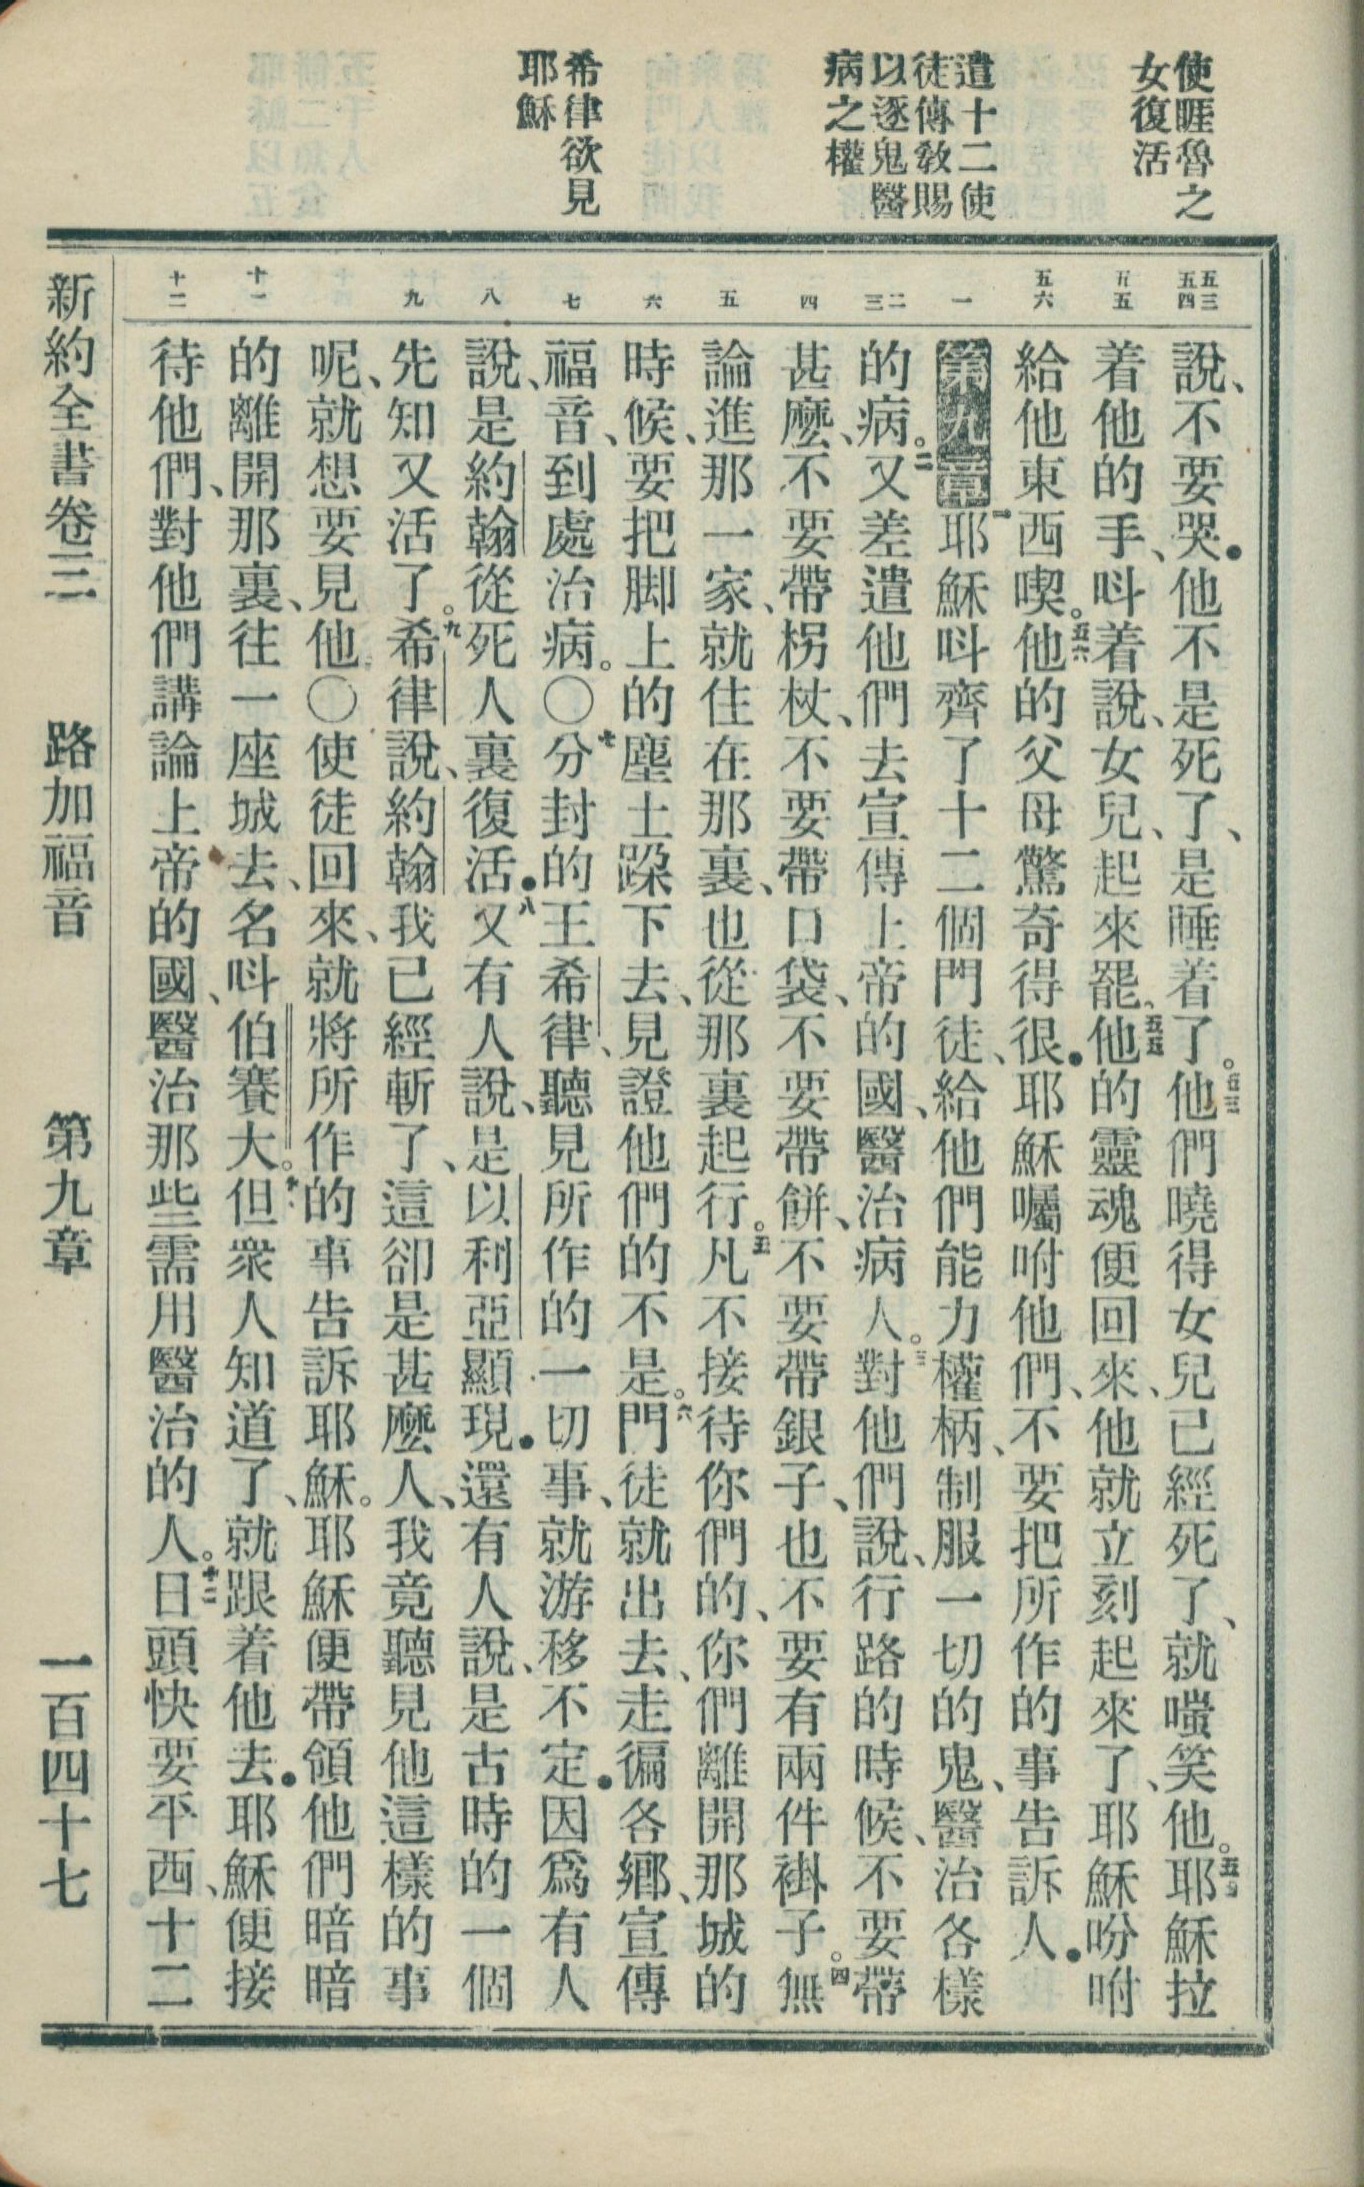 使睚魯之
女復活
遣十二使
徒傳教賜
以逐鬼醫
病之權
希律欲見
耶穌
五三
五四
五五
五六
一
二
三
四
五
六
七
八
九
十一
十二
說、不要哭●他不是死了、是睡着了。五三他們曉得女兒已經死了、就嗤笑他。五四耶穌拉
着他的手、呌着說、女兒、起來罷。五五他的靈魂便回來、他就立刻起來了、耶穌吩咐
給他東西喫。五六他的父母驚奇得很●耶穌囑咐他們、不要把所作的事告訴人●
第九章一耶穌呌齊了十二個門徒、給他們能力權柄、制服一切的鬼、醫治各樣
的病。二又差遣他們去宣傳上帝的國、醫治病人。三對他們說、行路的時候、不要帶
甚麼、不要帶柺杖、不要帶口袋、不要帶餅、不要帶銀子、也不要有兩件褂子。四無
論進那一家、就住在那裏、也從那裏起行。五凡不接待你們的、你們離開那城的
時候、要把脚上的塵土跺下去、見證他們的不是。六門徒就出去、走徧各鄉、宣傳
福音、到處治病。〇七分封的王希律、聽見所作的一切事、就游移不定●因爲有人
說、是約翰從死人裏復活●八又有人說、是以利亞顯現●還有人說、是古時的一個
先知又活了。九希律說、約翰我已經斬了、這卻是甚麼人、我竟聽見他這樣的事
呢、就想要見他〇使徒回來、就將所作的事告訴耶穌。耶穌便帶領他們暗暗
的離開那裏、往一座城去、名呌伯賽大。十一但衆人知道了、就跟着他去●耶穌便接
待他們、對他們講論上帝的國、醫治那些需用醫治的人。十二日頭快要平西、十二
新約全書卷三 路加福音 第九章 一百四十七